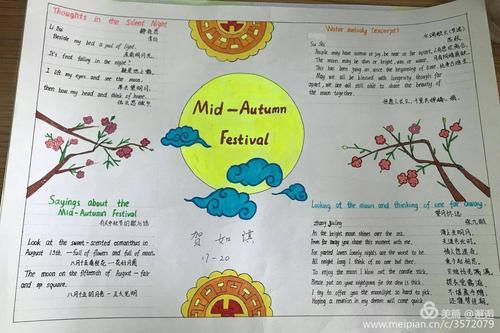 Thoughts in the Silent Night
静夜思
Li Bai
李白
Beside my bed a pool of light.
床前明月光,
It's frost falling in this night?
疑是地上霜。
I lift my eyes and see the moon.
举头望明月,
then bow my head and think of home.
低头思故乡。
Mid-Autumn
Festival
Water melody (excerpt)
水调歌头(节选)
Su Shi
苏轼
People may have sorrow or joy, be near or far apart,
The moon may be dim or bright, wax or wane,
This has been going on since the beginning of time.
May we all be blessed with longevity though far
apart, we are still able to share the beauty of
the moon together.
但愿人长久,千里共婵娟。
Sayings about the
Mid-Autumn Festival
Look at the sweet-scented osmanthus in
August 15th. —full of flowers and full of moon.
The moon on the fifteenth of August - fair
and square.
八月十五的月亮—正大光明
贺如淇
17-20
Looking at the moon and thinking of one far away
望月怀远
Zhang Jiuling
张九龄
As the bright moon shines over the sea,
海上生明月,
From far away you share this moment with me.
天涯共此时。
For parted lovers lonely nights are the worst to be.
情人怨遥夜,
All night long I think of no one but thee.
竟夕起相思。
To enjoy the moon I blow out the candle stick,
灭烛怜光满,
Please put on your nightgown for the dew is thick.
披衣觉露滋。
I try to offer you the moonlight so hard to pick,
不堪盈手赠,
Hoping a reunion in my dream will come quick.
还寝梦佳期。
美篇 @邂逅
www.meipian.cn/c/3572079